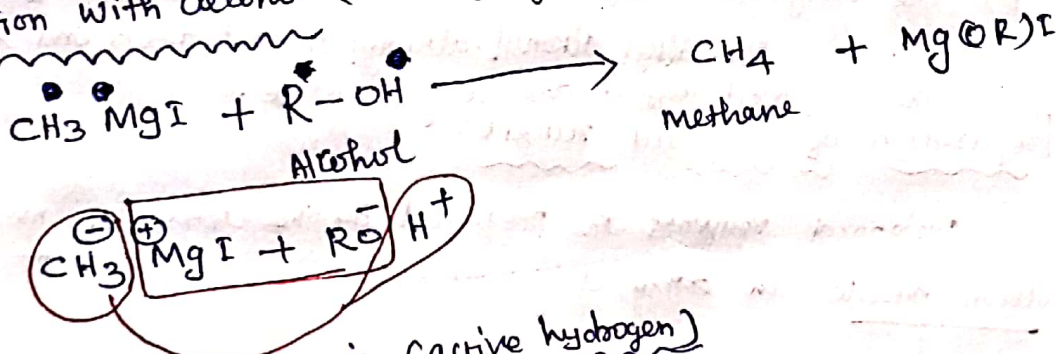 ion with
CH3 MgI + R - OH ⟶ CH4 + Mg(OR)I
Alcohol methane
CH3⁻ ⁺MgI + RO⁻ H⁺
(active hydrogen)